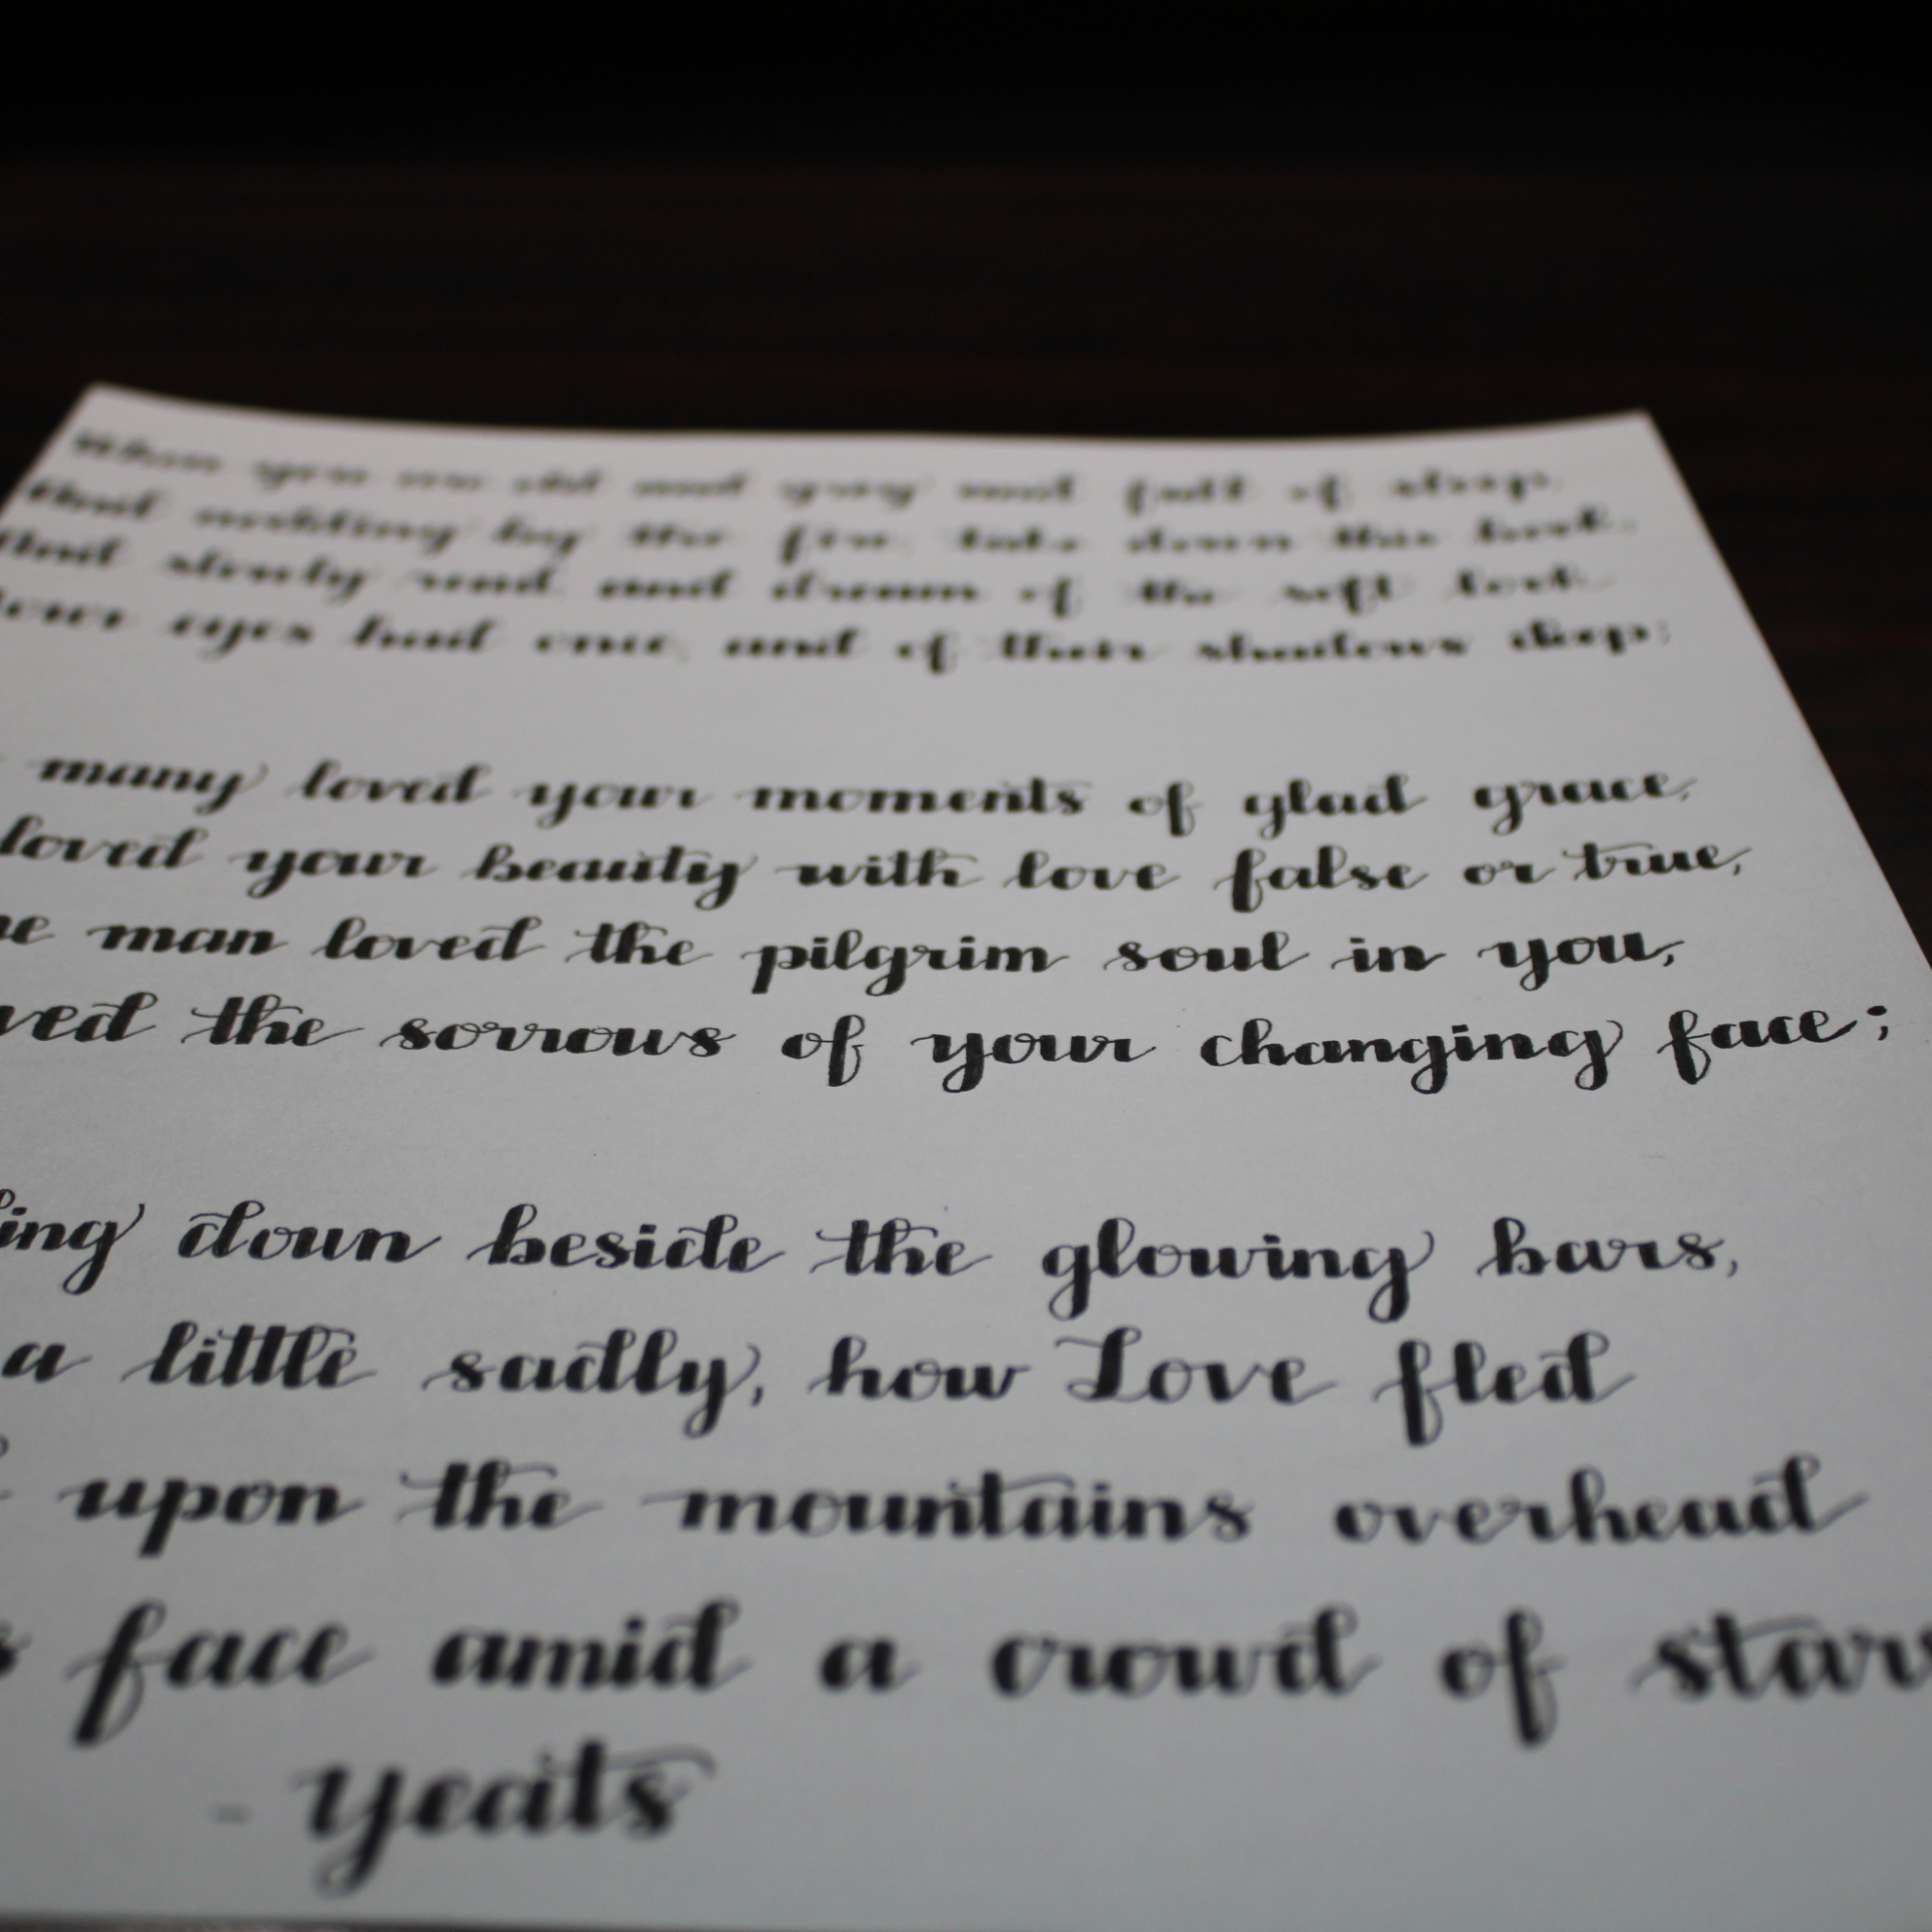 When you are old and grey and full of sleep,
And nodding by the fire, take down this book,
And slowly read, and dream of the soft look
Your eyes had once, and of their shadows deep;
many loved your moments of glad grace,
loved your beauty with love false or true,
man loved the pilgrim soul in you,
ved the sorrows of your changing face;
ing down beside the glowing bars,
a little sadly, how Love fled
upon the mountains overhead
face amid a crowd of stars
- Yeats